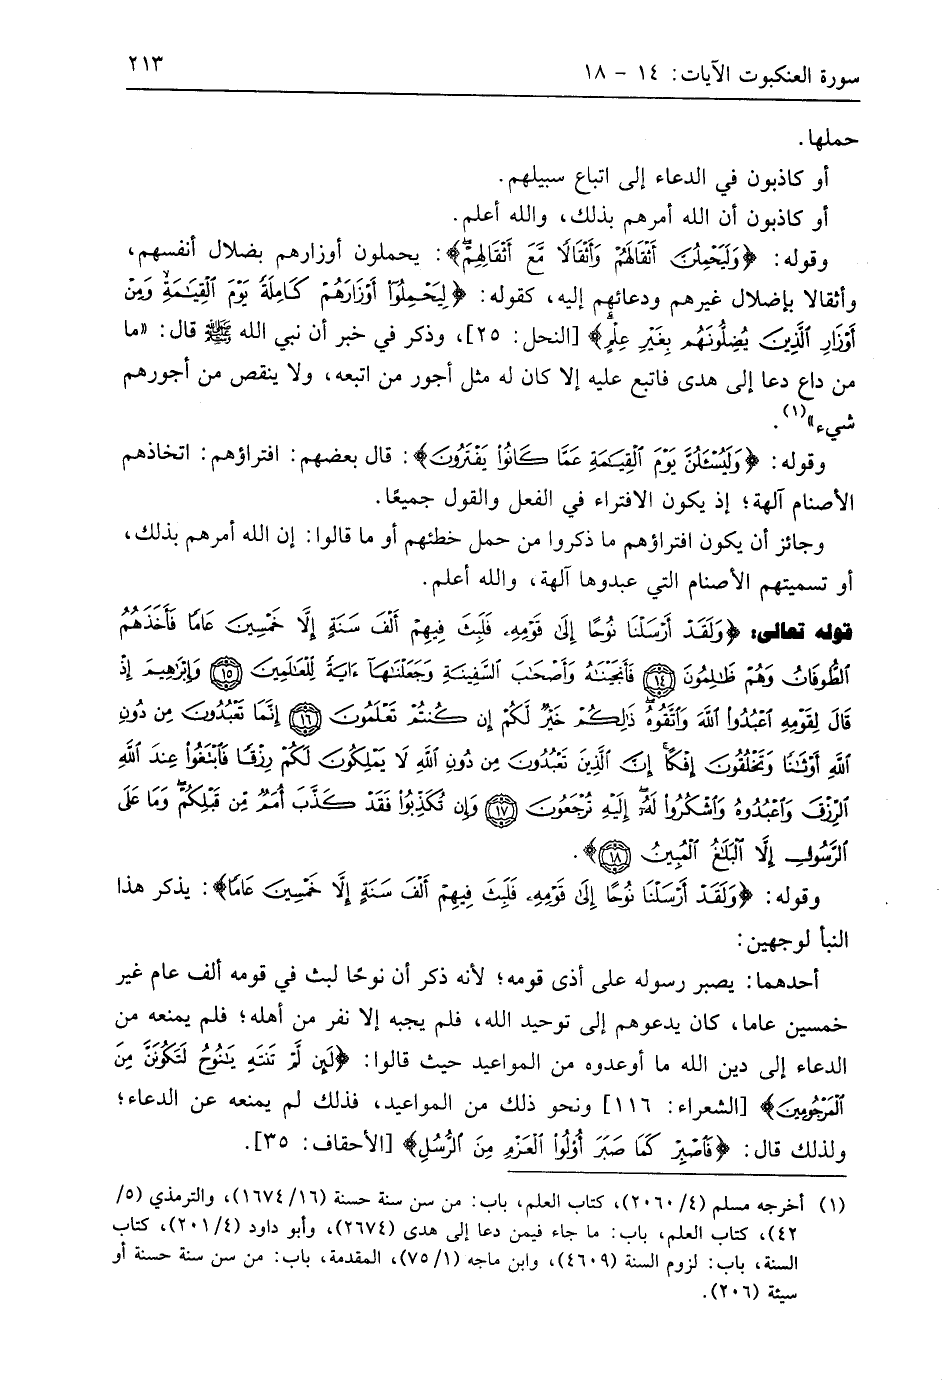 سورة العنكبوت الآيات: ١٤ - ١٨
٢١٣
حملها.
أو كاذبون في الدعاء إلى اتباع سبيلهم.
أو كاذبون أن الله أمرهم بذلك، والله أعلم.
وقوله: ﴿وَلَيَحْمِلُنَّ أَثْقَالَهُمْ وَأَثْقَالًا مَّعَ أَثْقَالِهِمْۖ﴾: يحملون أوزارهم بضلال أنفسهم،
وأثقالا بإضلال غيرهم ودعائهم إليه، كقوله: ﴿لِيَحْمِلُوٓا۟ أَوْزَارَهُمْ كَامِلَةً يَوْمَ ٱلْقِيَٰمَةِۙ وَمِنْ
أَوْزَارِ ٱلَّذِينَ يُضِلُّونَهُم بِغَيْرِ عِلْمٍۗ﴾ [النحل: ٢٥]، وذكر في خبر أن نبي الله ﷺ قال: «ما
من داع دعا إلى هدى فاتبع عليه إلا كان له مثل أجور من اتبعه، ولا ينقص من أجورهم
شيء»(١).
وقوله: ﴿وَلَيُسْـَٔلُنَّ يَوْمَ ٱلْقِيَٰمَةِ عَمَّا كَانُوا۟ يَفْتَرُونَ﴾: قال بعضهم: افتراؤهم: اتخاذهم
الأصنام آلهة؛ إذ يكون الافتراء في الفعل والقول جميعًا.
وجائز أن يكون افتراؤهم ما ذكروا من حمل خطئهم أو ما قالوا: إن الله أمرهم بذلك،
أو تسميتهم الأصنام التي عبدوها آلهة، والله أعلم.
قوله تعالى: ﴿وَلَقَدْ أَرْسَلْنَا نُوحًا إِلَىٰ قَوْمِهِۦ فَلَبِثَ فِيهِمْ أَلْفَ سَنَةٍ إِلَّا خَمْسِينَ عَامًا فَأَخَذَهُمُ
ٱلطُّوفَانُ وَهُمْ ظَٰلِمُونَ ۝١٤ فَأَنجَيْنَٰهُ وَأَصْحَٰبَ ٱلسَّفِينَةِ وَجَعَلْنَٰهَآ ءَايَةً لِّلْعَٰلَمِينَ ۝١٥ وَإِبْرَٰهِيمَ إِذْ
قَالَ لِقَوْمِهِ ٱعْبُدُوا۟ ٱللَّهَ وَٱتَّقُوهُۖ ذَٰلِكُمْ خَيْرٌ لَّكُمْ إِن كُنتُمْ تَعْلَمُونَ ۝١٦ إِنَّمَا تَعْبُدُونَ مِن دُونِ
ٱللَّهِ أَوْثَٰنًا وَتَخْلُقُونَ إِفْكًاۚ إِنَّ ٱلَّذِينَ تَعْبُدُونَ مِن دُونِ ٱللَّهِ لَا يَمْلِكُونَ لَكُمْ رِزْقًا فَٱبْتَغُوا۟ عِندَ ٱللَّهِ
ٱلرِّزْقَ وَٱعْبُدُوهُ وَٱشْكُرُوا۟ لَهُۥٓۖ إِلَيْهِ تُرْجَعُونَ ۝١٧ وَإِن تُكَذِّبُوا۟ فَقَدْ كَذَّبَ أُمَمٌ مِّن قَبْلِكُمْۖ وَمَا عَلَى
ٱلرَّسُولِ إِلَّا ٱلْبَلَٰغُ ٱلْمُبِينُ ۝١٨﴾.
وقوله: ﴿وَلَقَدْ أَرْسَلْنَا نُوحًا إِلَىٰ قَوْمِهِۦ فَلَبِثَ فِيهِمْ أَلْفَ سَنَةٍ إِلَّا خَمْسِينَ عَامًا﴾: يذكر هذا
النبأ لوجهين:
أحدهما: يصبر رسوله على أذى قومه؛ لأنه ذكر أن نوحًا لبث في قومه ألف عام غير
خمسين عاما، كان يدعوهم إلى توحيد الله، فلم يجبه إلا نفر من أهله؛ فلم يمنعه من
الدعاء إلى دين الله ما أوعدوه من المواعيد حيث قالوا: ﴿لَئِن لَّمْ تَنتَهِ يَٰنُوحُ لَتَكُونَنَّ مِنَ
ٱلْمَرْجُومِينَ﴾ [الشعراء: ١١٦] ونحو ذلك من المواعيد، فذلك لم يمنعه عن الدعاء؛
ولذلك قال: ﴿فَٱصْبِرْ كَمَا صَبَرَ أُو۟لُوا۟ ٱلْعَزْمِ مِنَ ٱلرُّسُلِ﴾ [الأحقاف: ٣٥].
(١) أخرجه مسلم (٢٠٦٠/٤)، كتاب العلم، باب: من سن سنة حسنة (١٦٧٤/١٦)، والترمذي (٥/
٤٢)، كتاب العلم، باب: ما جاء فيمن دعا إلى هدى (٢٦٧٤)، وأبو داود (٢٠١/٤)، كتاب
السنة، باب: لزوم السنة (٤٦٠٩)، وابن ماجه (٧٥/١)، المقدمة، باب: من سن سنة حسنة أو
سيئة (٢٠٦).